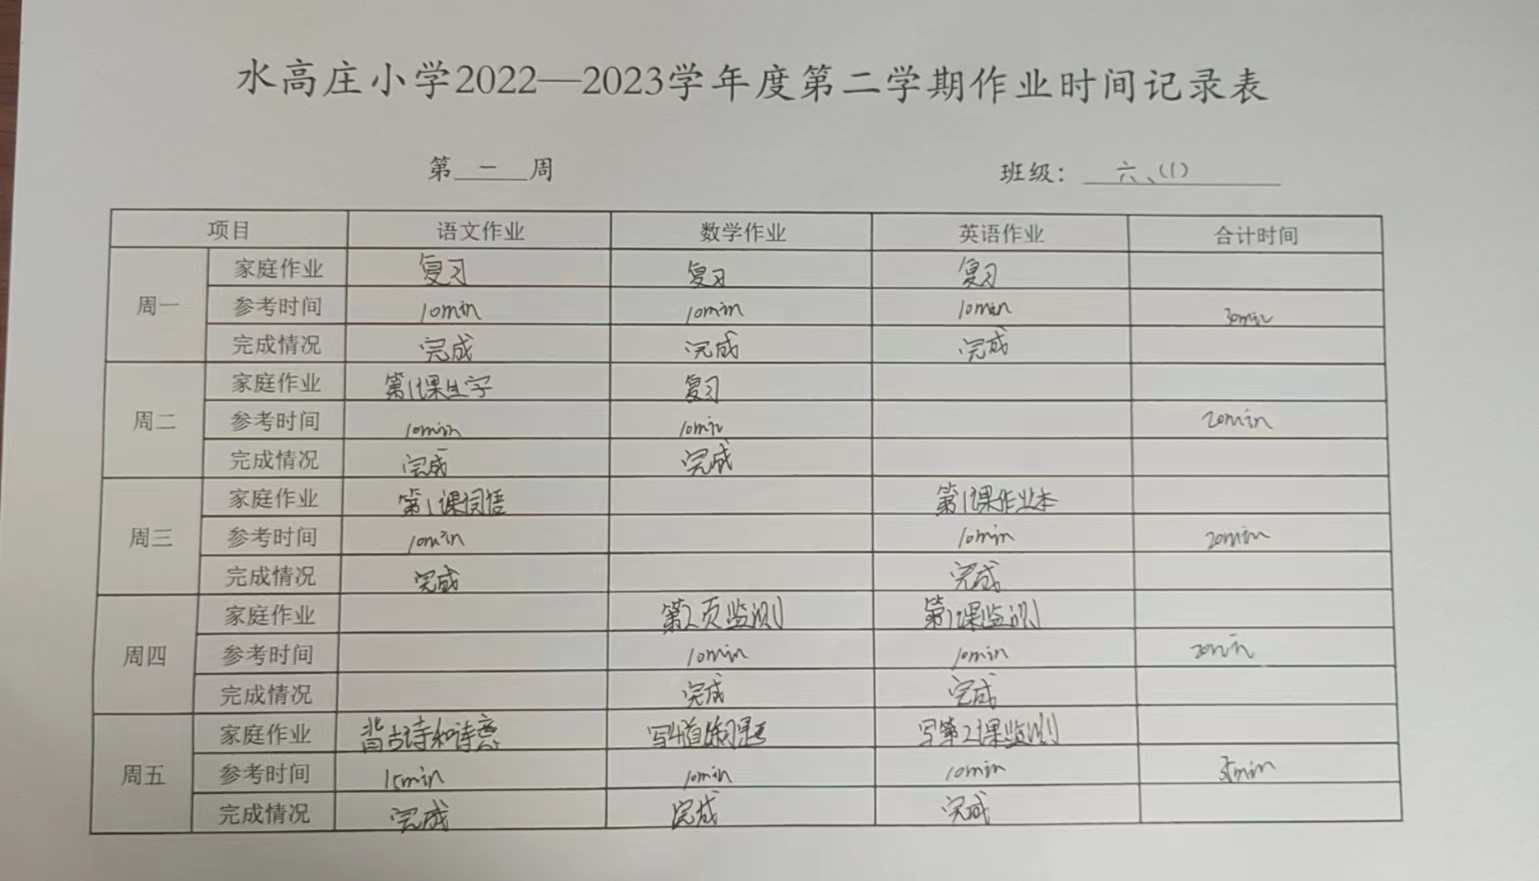 水高庄小学2022—2023学年度第二学期作业时间记录表
第一周 班级：六、(1)
项目 语文作业 数学作业 英语作业 合计时间
周一 家庭作业 复习 复习 复习
参考时间 10min 10min 10min 30min
完成情况 完成 完成 完成
周二 家庭作业 第1课生字 复习
参考时间 10min 10min 20min
完成情况 完成 完成
周三 家庭作业 第1课词语 第1课作业本
参考时间 10min 10min 20min
完成情况 完成 完成
周四 家庭作业 第2页监测 第1课监测
参考时间 10min 10min 20min
完成情况 完成 完成
周五 家庭作业 背古诗和诗意 写4道 写第2课监测
参考时间 15min 10min 10min 35min
完成情况 完成 完成 完成